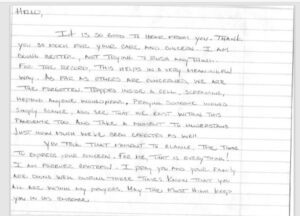 Hello,
It is so good to hear from you. Thank
you so much for your care and concern. I am
doing better, just trying to push any
For the record, this helps in a very meaningful
way. As far as others are concerned, we are
the forgotten. Trapped inside a cell, screaming,
hoping anyone would hear. Praying someone would
simply glance, and see that we exist within this
pandemic too and take a moment to understand
just how much we've been affected as well.
You took that moment to glance. The time
to express your concern. For me, that is everything!
I am forever grateful. I pray you and your family
are doing well during these times. Know that you
all are within my prayers. May the Most High keep
you in his embrace.